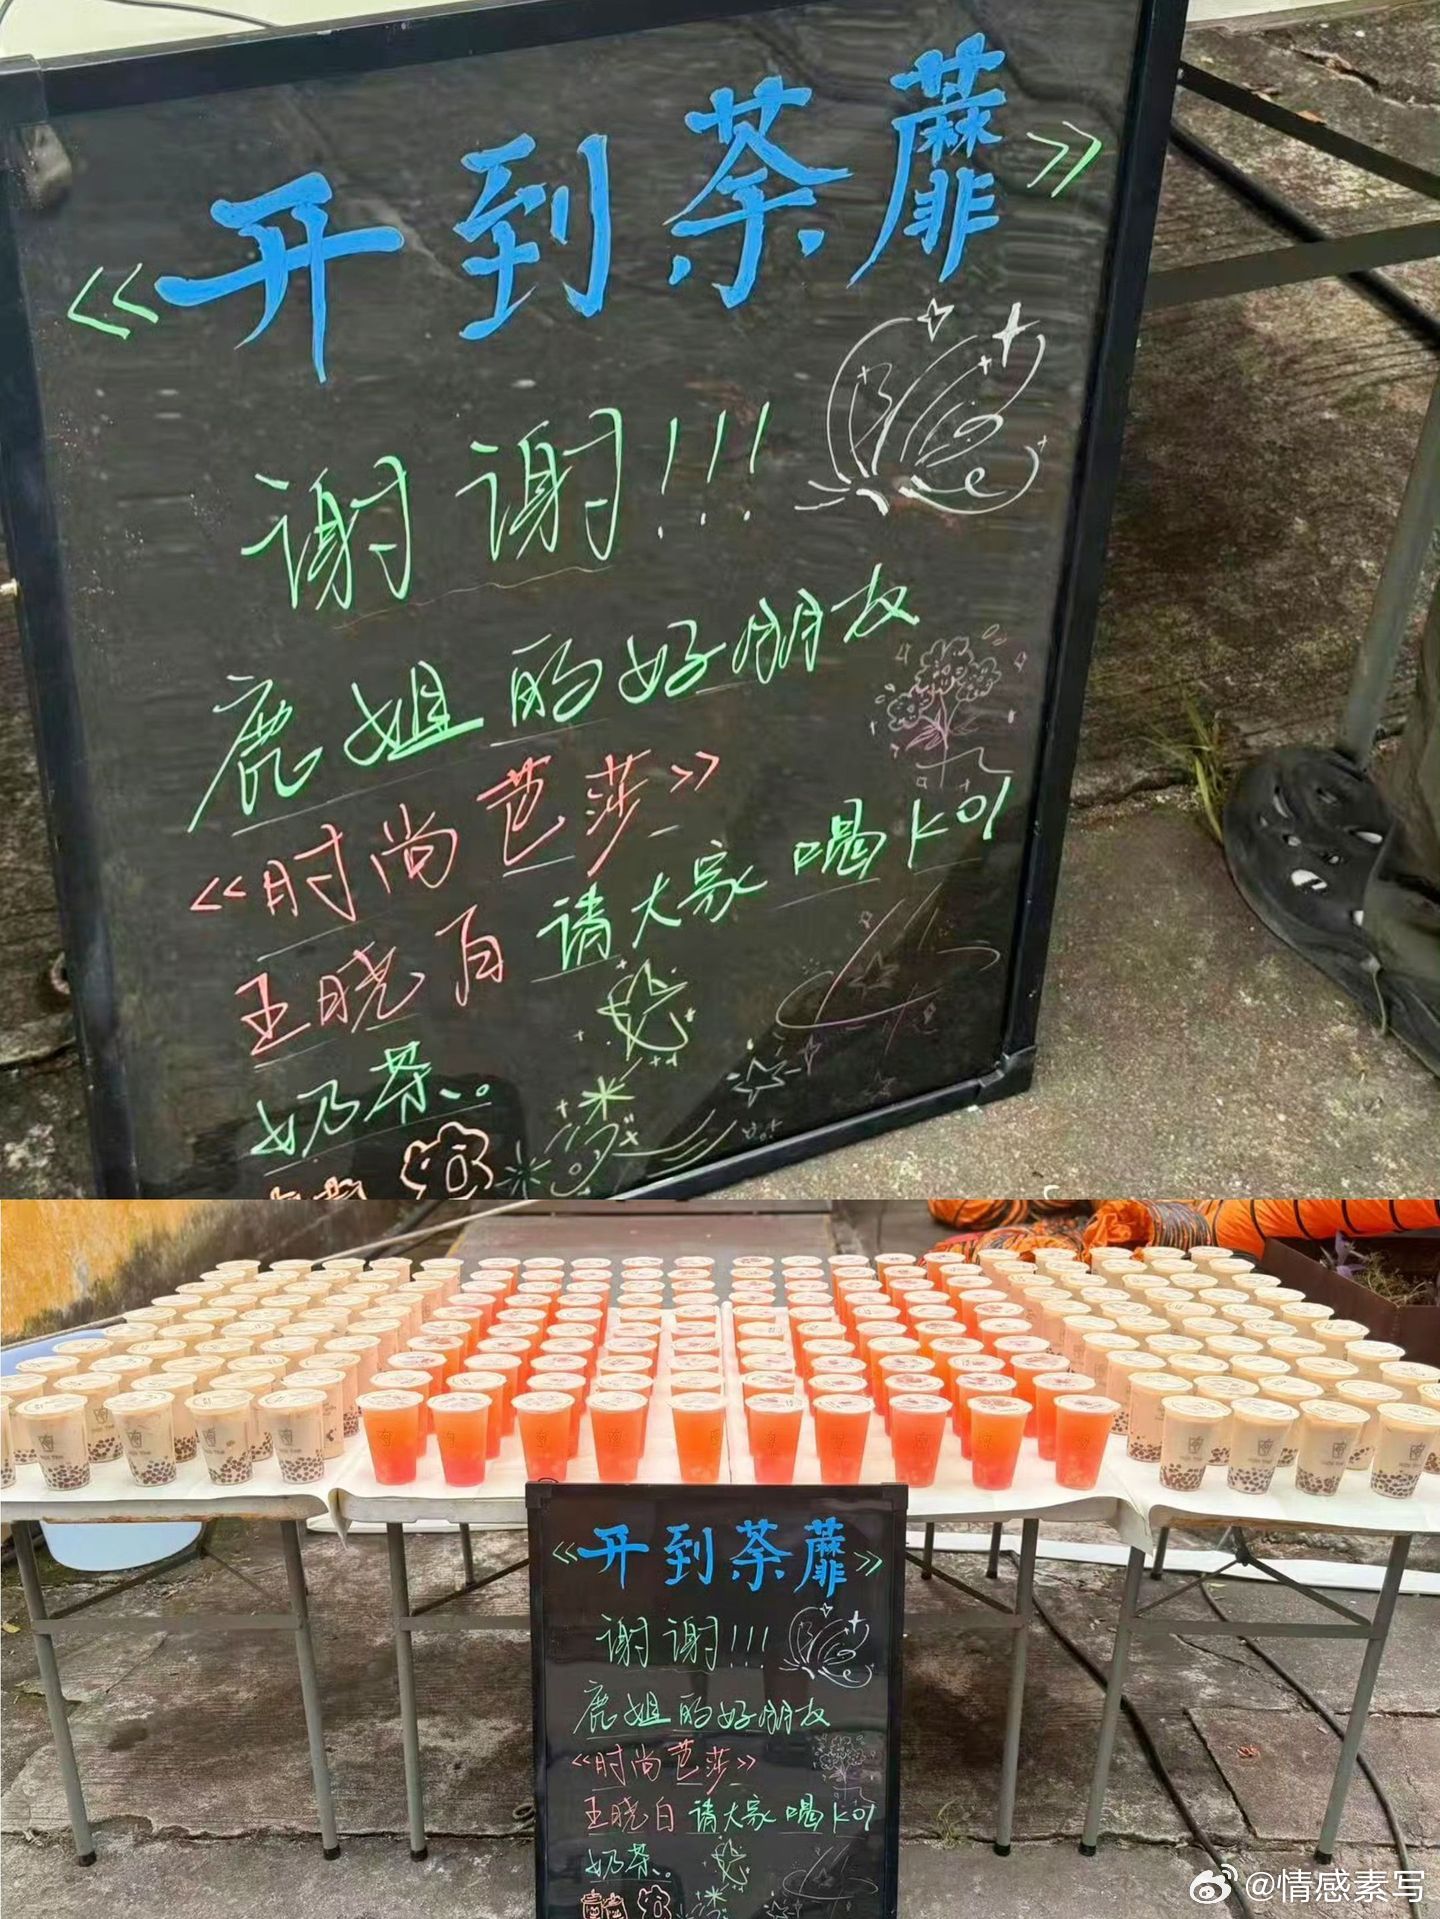 《开到荼蘼》
谢谢!!!
鹿姐的好朋友
《时尚芭莎》
王晓白请大家喝KOI
奶茶。
《开到荼蘼》
谢谢!!!
鹿姐的好朋友
《时尚芭莎》
王晓白请大家喝KOI
奶茶。
@情感素写